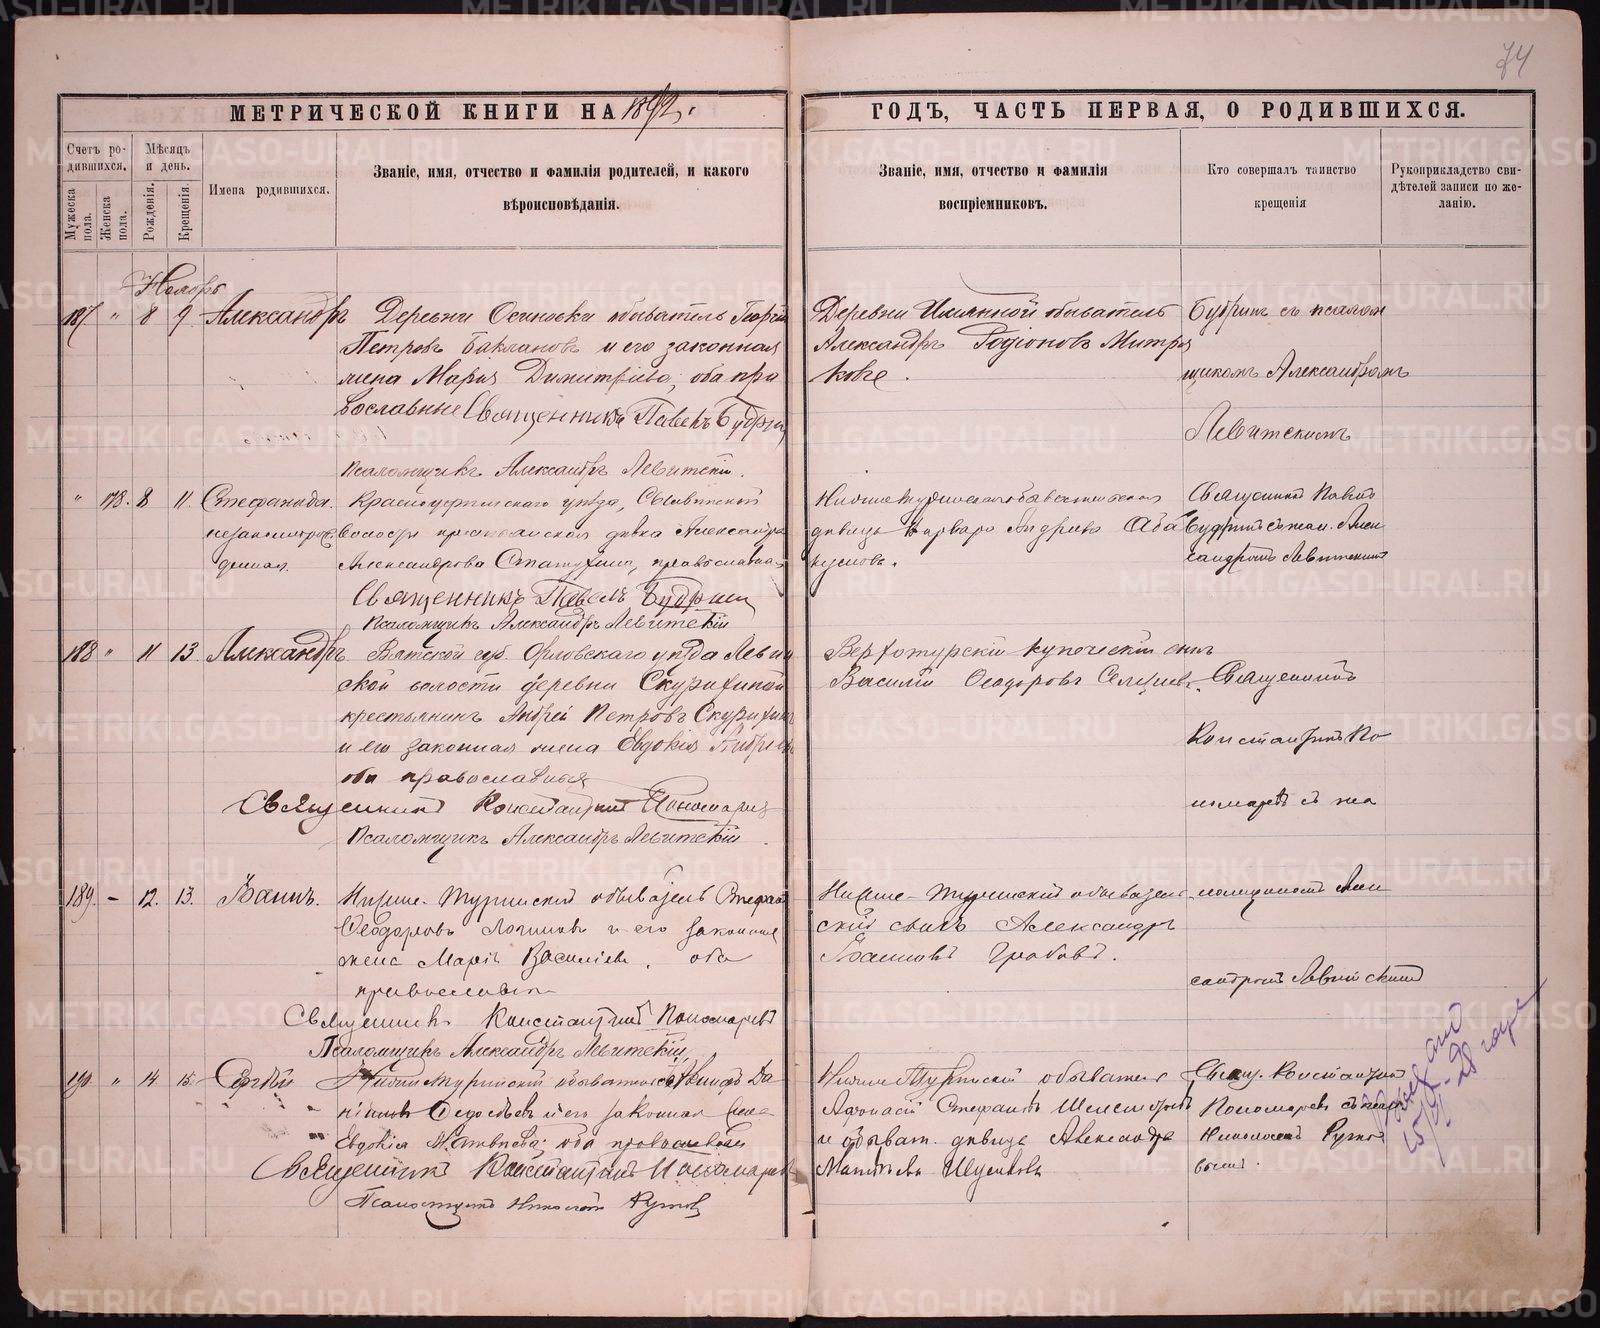 74
МЕТРИЧЕСКОЙ КНИГИ НА 1892 г.
ГОДЪ, ЧАСТЬ ПЕРВАЯ, О РОДИВШИХСЯ.
Счетъ родившихся.
Мужеска пола.
Женска пола.
Мѣсяцъ и день.
Рожденія.
Крещенія.
Имена родившихся.
Званіе, имя, отчество и фамилія родителей, и какого
вѣроисповѣданія.
Званіе, имя, отчество и фамилія
воспріемниковъ.
Кто совершалъ таинство
крещенія
Рукоприкладство свидѣтелей записи по желанію.
Ноябрь
187. " 8 9 Александръ
Деревни Осиновки обыватель Георгій
Петровъ Баклановъ и его законная
жена Марія Димитріева, оба пра
вославные Священникъ Павелъ Будрин
Псаломщикъ Александръ Левитскій.
Деревни обыватель
Александръ Родіоновъ Митря
ковъ.
Будринъ съ псалом
щикомъ Александромъ
Левитскимъ
" 178. 8 11. Стефанида.
незаконорож
денная.
Красноуфимскаго уѣзда, Сылвинской
волости крестьянская дѣвка Александра
Александрова православная
Священникъ Павелъ Будрин
Псаломщикъ Александръ Левитскій
Нижнетуринская
дѣвица Варвара Андреева Аба
кумова.
Священникъ Павелъ
Будринъ съ псал. Алек
сандромъ Левитскимъ
188 " 11 13. Александръ
Вятской губ. Орловскаго уѣзда Левин
ской волости деревни Скурихиной
крестьянинъ Андрей Петровъ Скурихинъ
и его законная жена Евдокія
оба православныя
Священникъ Константинъ Пономаревъ
Псаломщикъ Александръ Левитскій
Верхотурскій купеческій сынъ
Василій Ѳеодоровъ
Священникъ
Константинъ По
номаревъ съ пса
189. - 12. 13. Іоаннъ.
Нижне-Туринскій обыватель Стефанъ
Ѳеодоровъ Логиновъ и его законная
жена Марія Василіева, оба
православны
Священникъ Константинъ Пономаревъ
Псаломщикъ Александръ Левитскій
Нижне-Туринскій обыватель
скій сынъ Александръ
Іоанновъ Грабовъ.
ломщикомъ Алек
сандромъ Левитскимъ
190 " 14 15. Сергѣй
Нижнетуринскій обыватель Да
ніиловъ Ѳедосѣевъ и его законная жена
Евдокія Матвѣева оба православны
Священникъ Константинъ Пономаревъ
Псаломщикъ Николай
Нижнетуринскій обыватель
Аѳанасій Стефановъ Шелеметьевъ
и обыват. дѣвица Александра
Матвѣева
Свящ. Константинъ
Пономаревъ съ псал.
Николаемъ
28 года